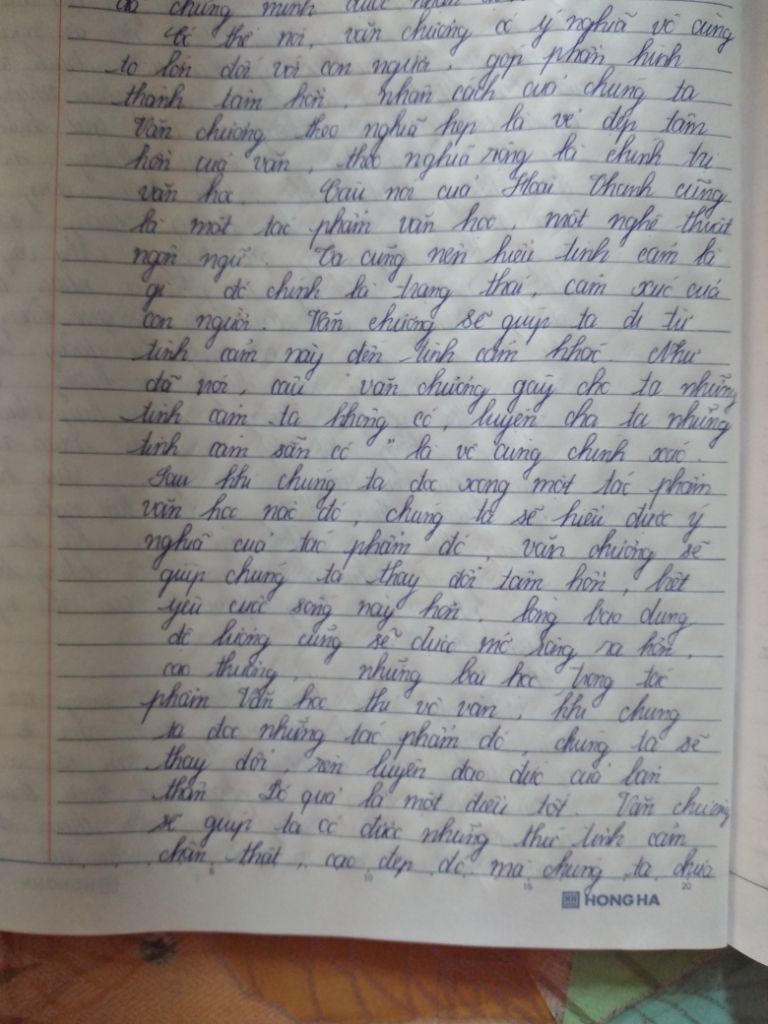 đã chứng minh được nhận
Có thể nói, văn chương có ý nghĩa vô cùng
to lớn đối với con người, góp phần hình
thành tâm hồn, nhân cách của chúng ta
Văn chương theo nghĩa hẹp là vẻ đẹp tâm
hồn của văn, theo nghĩa rộng là chính trị
văn học. Câu nói của Hoài Thanh cũng
là một tác phẩm văn học, một nghệ thuật
ngôn ngữ. Ta cũng nên hiểu tình cảm là
gì đó chính là trạng thái, cảm xúc của
con người. Văn chương sẽ giúp ta đi từ
tình cảm này đến tình cảm khác. Như
đã nói, câu "văn chương gây cho ta những
tình cảm ta không có, luyện cho ta những
tình cảm sẵn có" là vô cùng chính xác.
Sau khi chúng ta đọc xong một tác phẩm
văn học nào đó, chúng ta sẽ hiểu được ý
nghĩa của tác phẩm đó, văn chương sẽ
giúp chúng ta thay đổi tâm hồn, biết
yêu cuộc sống này hơn, lòng bao dung
độ lượng cũng sẽ được mở rộng ra hơn,
cao thượng, những bài học trong tác
phẩm Văn học thì vô vàn, khi chúng
ta đọc những tác phẩm đó, chúng ta sẽ
thay đổi, rèn luyện đạo đức của bản
thân Đó quả là một điều tốt. Văn chương
sẽ giúp ta có được những thứ tình cảm
chân thật, cao đẹp đó mà chúng ta chưa
5 10 15 20
HH HONG HA